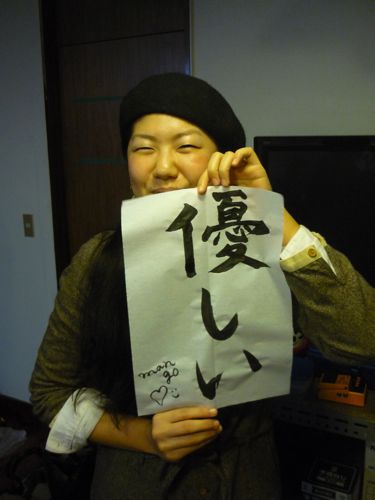 優しい
man
go